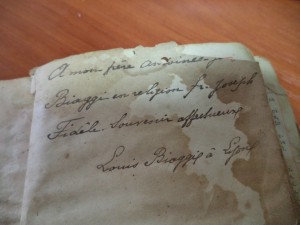 A mon père
Biaggi en religion fr. Joseph
Fidèle. Souvenir affectueux
Louis Biaggi à